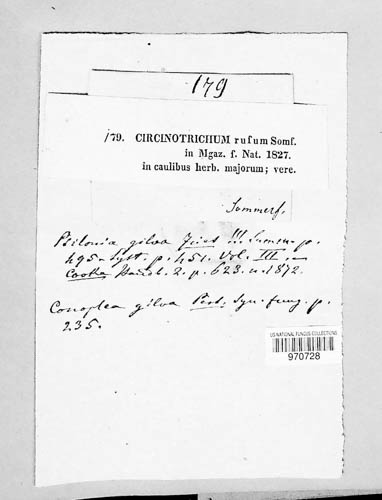 179
179. CIRCINOTRICHUM rufum Somf.
in Mgaz. f. Nat. 1827.
in caulibus herb. majorum; vere.
Sommerf.
Psilonia gilva Fries !!! p.
495. Syst. p. 451. Vol. III. —
2. p. 623. n. 1872.
Conoplea gilva Pers. Syn. fung. p.
235.
US NATIONAL FUNGUS COLLECTIONS
970728